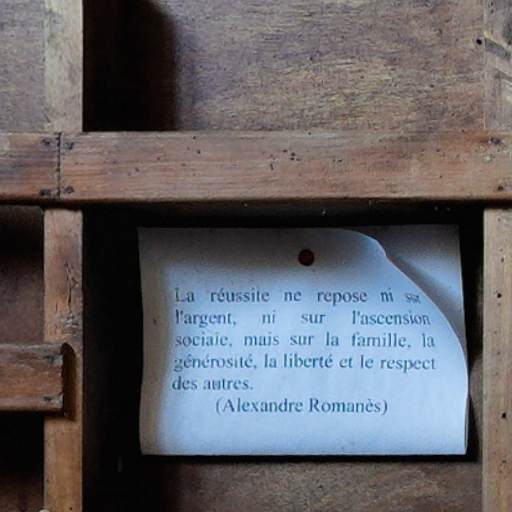 La réussite ne repose ni sur
l'argent, ni sur l'ascension
sociale, mais sur la famille, la
générosité, la liberté et le respect
des autres.
(Alexandre Romanès)